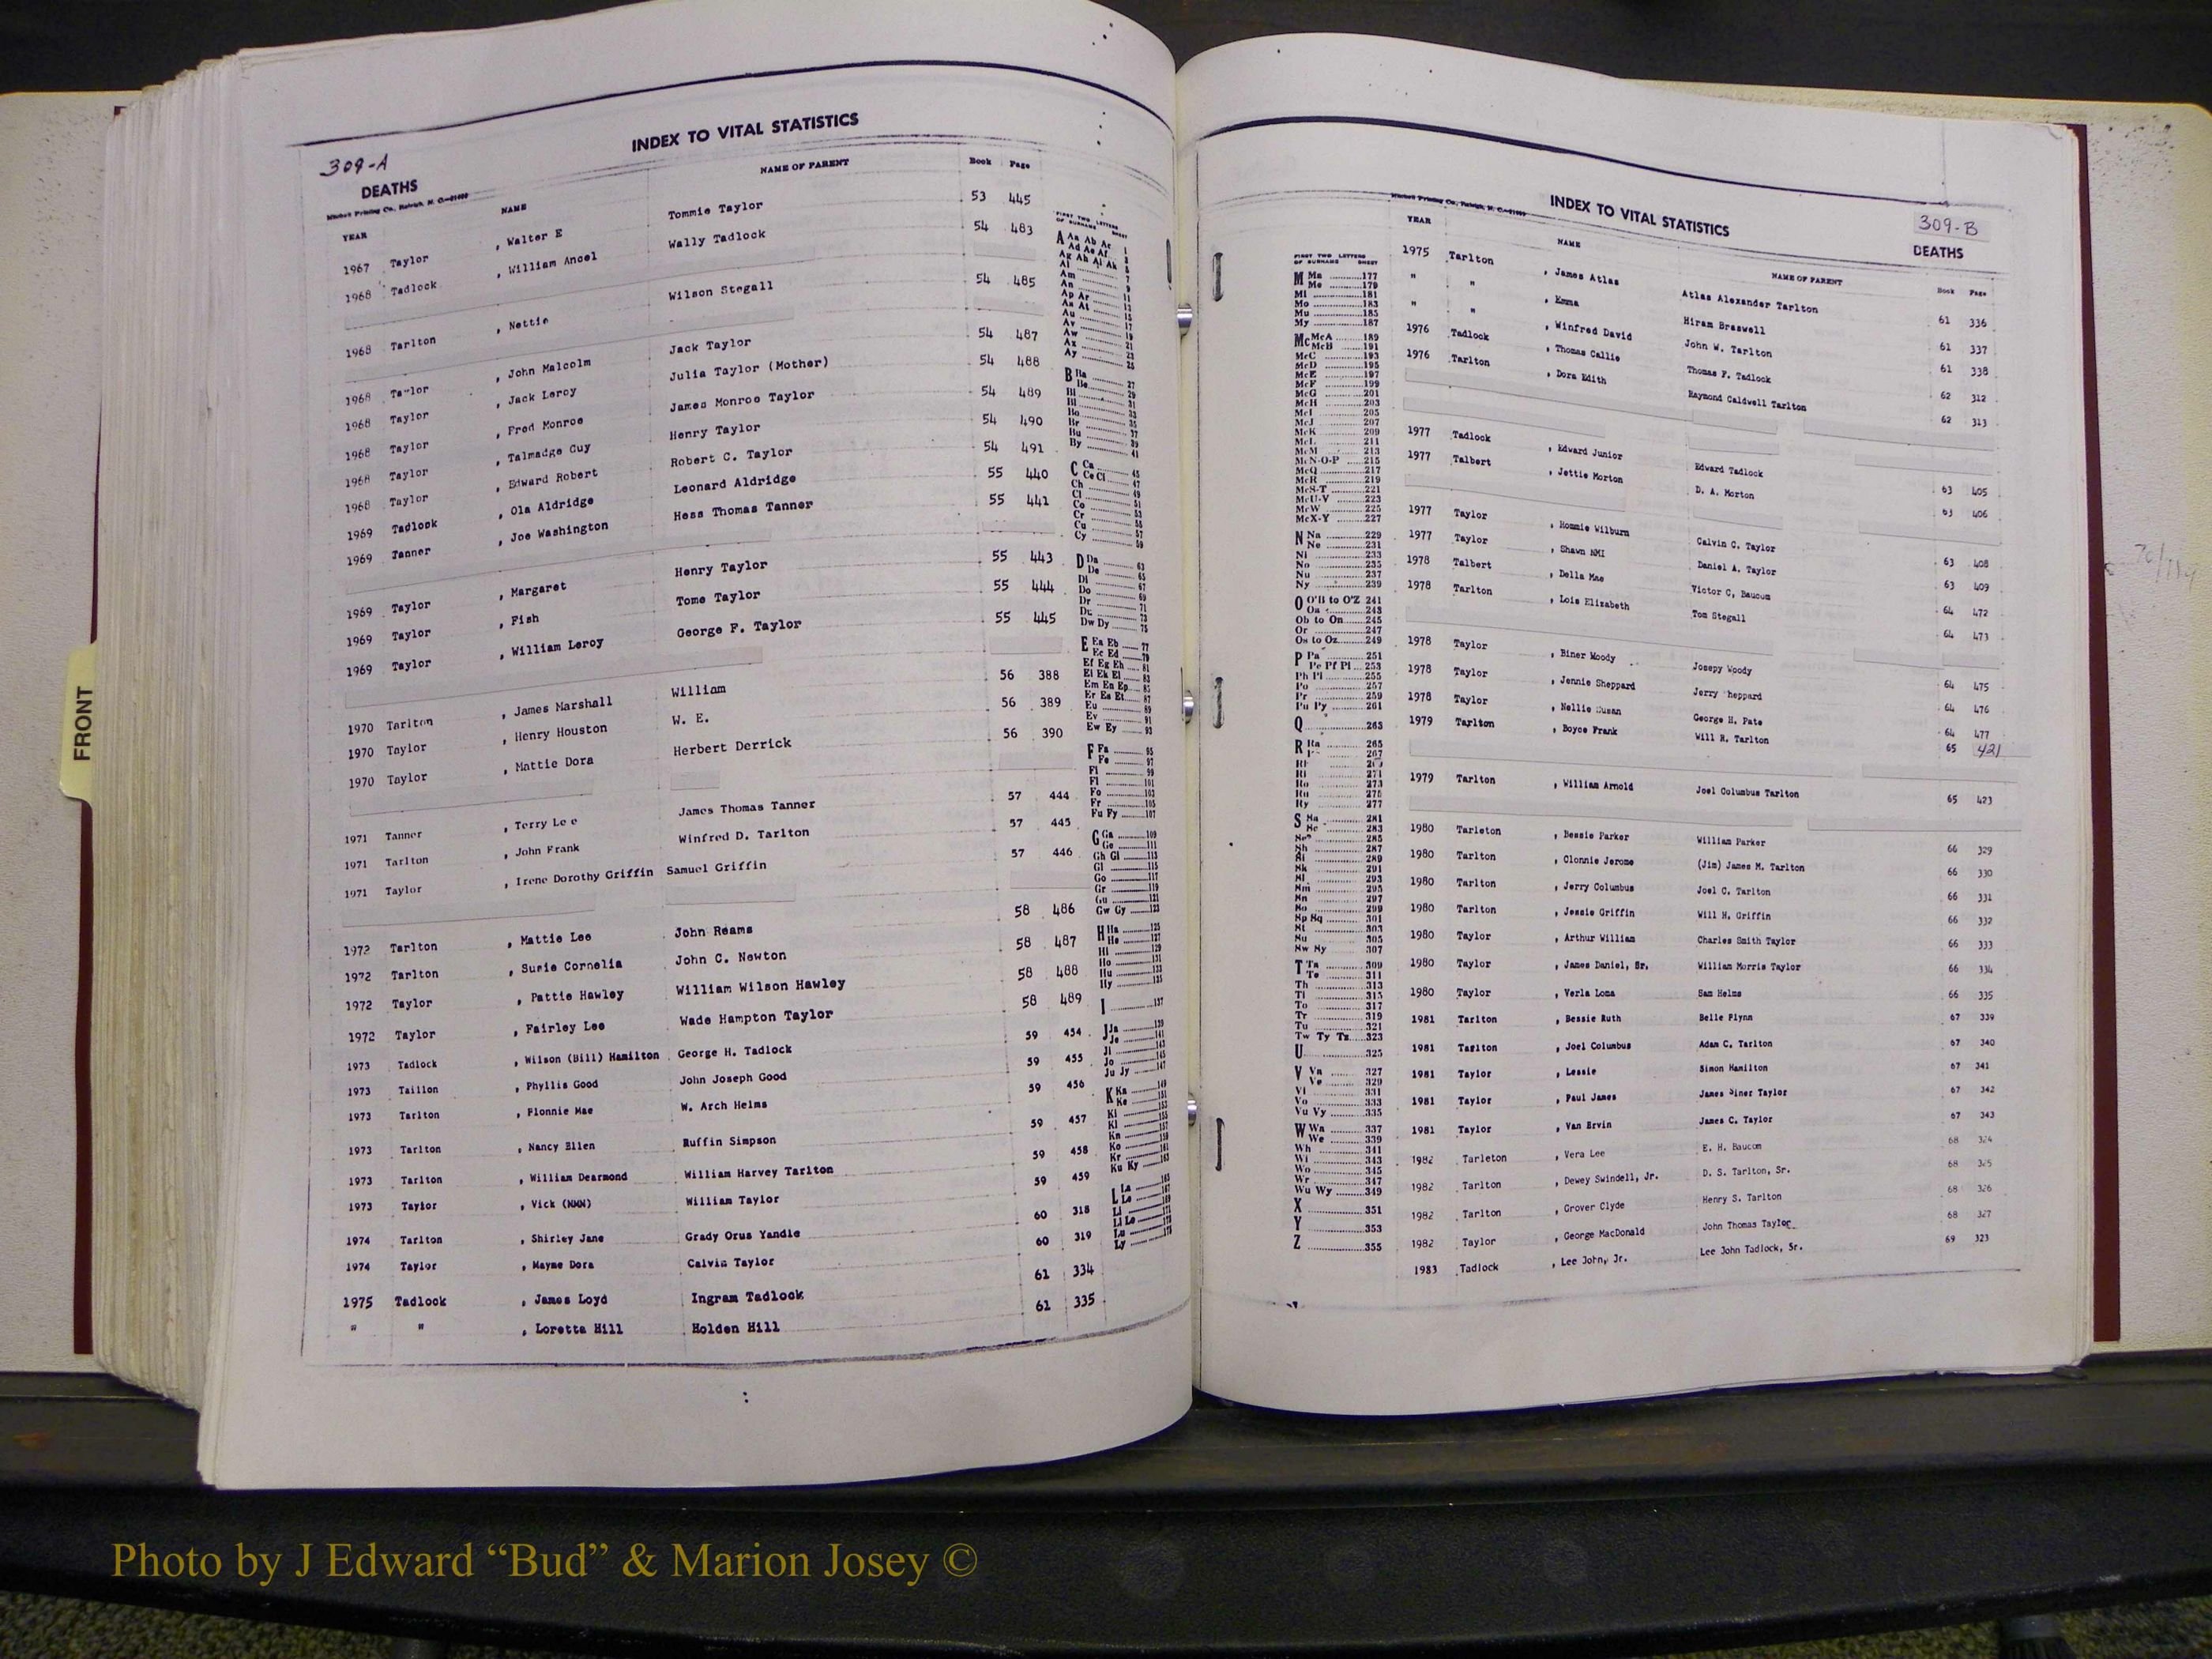 309-A
INDEX TO VITAL STATISTICS
DEATHS
Mitchell Printing Co., Raleigh, N. C.
YEAR NAME NAME OF PARENT Book Page
1967 Taylor , Walter E Tommie Taylor 53 445
1968 Tadlock , William Ancel Wally Tadlock 54 483
1968 Tarlton , Nettie Wilson Stegall 54 485
1968 Taylor , John Malcolm Jack Taylor 54 487
1968 Taylor , Jack Leroy Julia Taylor (Mother) 54 488
1968 Taylor , Fred Monroe James Monroe Taylor 54 489
1968 Taylor , Talmadge Guy Henry Taylor 54 490
1968 Taylor , Edward Robert Robert C. Taylor 54 491
1969 Tadlock , Ola Aldridge Leonard Aldridge 55 440
1969 Tanner , Joe Washington Hess Thomas Tanner 55 441
1969 Taylor , Margaret Henry Taylor 55 443
1969 Taylor , Fish Tome Taylor 55 444
1969 Taylor , William Leroy George F. Taylor 55 445
1970 Tarlton , James Marshall William 56 388
1970 Taylor , Henry Houston W. E. 56 389
1970 Taylor , Mattie Dora Herbert Derrick 56 390
1971 Tanner , Terry Lee James Thomas Tanner 57 444
1971 Tarlton , John Frank Winfred D. Tarlton 57 445
1971 Taylor , Irene Dorothy Griffin Samuel Griffin 57 446
1972 Tarlton , Mattie Lee John Reams 58 486
1972 Tarlton , Susie Cornelia John C. Newton 58 487
1972 Taylor , Pattie Hawley William Wilson Hawley 58 488
1972 Taylor , Fairley Lee Wade Hampton Taylor 58 489
1973 Tadlock , Wilson (Bill) Hamilton George H. Tadlock 59 454
1973 Taillon , Phyllis Good John Joseph Good 59 455
1973 Tarlton , Flonnie Mae W. Arch Helms 59 456
1973 Tarlton , Nancy Ellen Ruffin Simpson 59 457
1973 Tarlton , William Dearmond William Harvey Tarlton 59 458
1973 Taylor , Vick (NMN) William Taylor 59 459
1974 Tarlton , Shirley Jane Grady Orus Yandle 60 318
1974 Taylor , Mayme Dora Calvin Taylor 60 319
1975 Tadlock , James Loyd Ingram Tadlock 61 334
" " , Loretta Hill Holden Hill 61 335
FIRST TWO LETTERS OF SURNAME SHEET
A Aa Ab Ac 1
B Ba 27
C Ca 45
D Da 63
E Ea Eb 77
F Fa 95
G Ga 109
H Ha 125
I 137
J Ja 139
K Ka 149
L La 165
FRONT
INDEX TO VITAL STATISTICS
309-B
DEATHS
Mitchell Printing Co., Raleigh, N. C.
YEAR NAME NAME OF PARENT Book Page
1975 Tarlton , James Atlas Atlas Alexander Tarlton 61 336
" " , Emma Hiram Braswell 61 337
" " , Winfred David John W. Tarlton 61 338
1976 Tadlock , Thomas Callie Thomas F. Tadlock 62 312
1976 Tarlton , Dora Edith Raymond Caldwell Tarlton 62 313
1977 Tadlock , Edward Junior Edward Tadlock 63 405
1977 Talbert , Jettie Morton D. A. Morton 63 406
1977 Taylor , Hommie Wilburn Calvin C. Taylor 63 408
1977 Taylor , Shawn NMI Daniel A. Taylor 63 409
1978 Talbert , Della Mae Victor C, Baucum 64 472
1978 Tarlton , Lois Elizabeth Tom Stegall 64 473
1978 Taylor , Biner Moody Josepy Woody 64 475
1978 Taylor , Jennie Sheppard Jerry heppard 64 476
1978 Taylor , Nellie Susan George H. Pate 64 477
1979 Tarlton , Boyce Frank Will R. Tarlton 65 421
1979 Tarlton , William Arnold Joel Columbus Tarlton 65 423
1980 Tarleton , Bessie Parker William Parker 66 329
1980 Tarlton , Clonnie Jerome (Jim) James M. Tarlton 66 330
1980 Tarlton , Jerry Columbus Joel C. Tarlton 66 331
1980 Tarlton , Jessie Griffin Will H. Griffin 66 332
1980 Taylor , Arthur William Charles Smith Taylor 66 333
1980 Taylor , James Daniel, Sr. William Morris Taylor 66 334
1980 Taylor , Verla Loma Sam Helms 66 335
1981 Tarlton , Bessie Ruth Belle Flynn 67 339
1981 Tarlton , Joel Columbus Adam C. Tarlton 67 340
1981 Taylor , Lessie Simon Hamilton 67 341
1981 Taylor , Paul James James Biner Taylor 67 342
1981 Taylor , Van Ervin James C. Taylor 67 343
1982 Tarleton , Vera Lee E. H. Baucom 68 324
1982 Tarlton , Dewey Swindell, Jr. D. S. Tarlton, Sr. 68 325
1982 Tarlton , Grover Clyde Henry S. Tarlton 68 326
1982 Taylor , George MacDonald John Thomas Taylor 68 327
1983 Tadlock , Lee John, Jr. Lee John Tadlock, Sr. 69 323
FIRST TWO LETTERS OF SURNAME SHEET
M Ma 177
Me 179
Mi 181
Mo 183
Mu 185
My 187
Mc McA 189
McB 191
McC 193
McD 195
McE 197
McF 199
McG 201
McH 203
McI 205
McJ 207
McK 209
McL 211
McM 213
McN-O-P 215
McQ 217
McR 219
McS-T 221
McU-V 223
McW 225
McX-Y 227
N Na 229
Ne 231
Ni 233
No 235
Nu 237
Ny 239
O O'B to O'Z 241
Oa 243
Ob to On 245
Or 247
Os to Oz 249
P Pa 251
Pe Pf Pi 253
Ph Pl 255
Po 257
Pr 259
Pu Py 261
Q 263
R Ra 265
267
Ri 271
Ro 273
Ru 275
Ry 277
S Sa 281
Sc 283
Se 285
Sh 287
Si 289
Sk 291
Sl 293
Sm 295
Sn 297
So 299
Sp Sq 301
St 303
Su 305
Sw Sy 307
T Ta 309
Te 311
Th 313
Ti 315
To 317
Tr 319
Tu 321
Tw Ty Tz 323
U 325
V Va 327
Ve 329
Vi 331
Vo 333
Vu Vy 335
W Wa 337
We 339
Wh 341
Wi 343
Wo 345
Wr 347
Wu Wy 349
X 351
Y 353
Z 355
Photo by J Edward “Bud” & Marion Josey ©